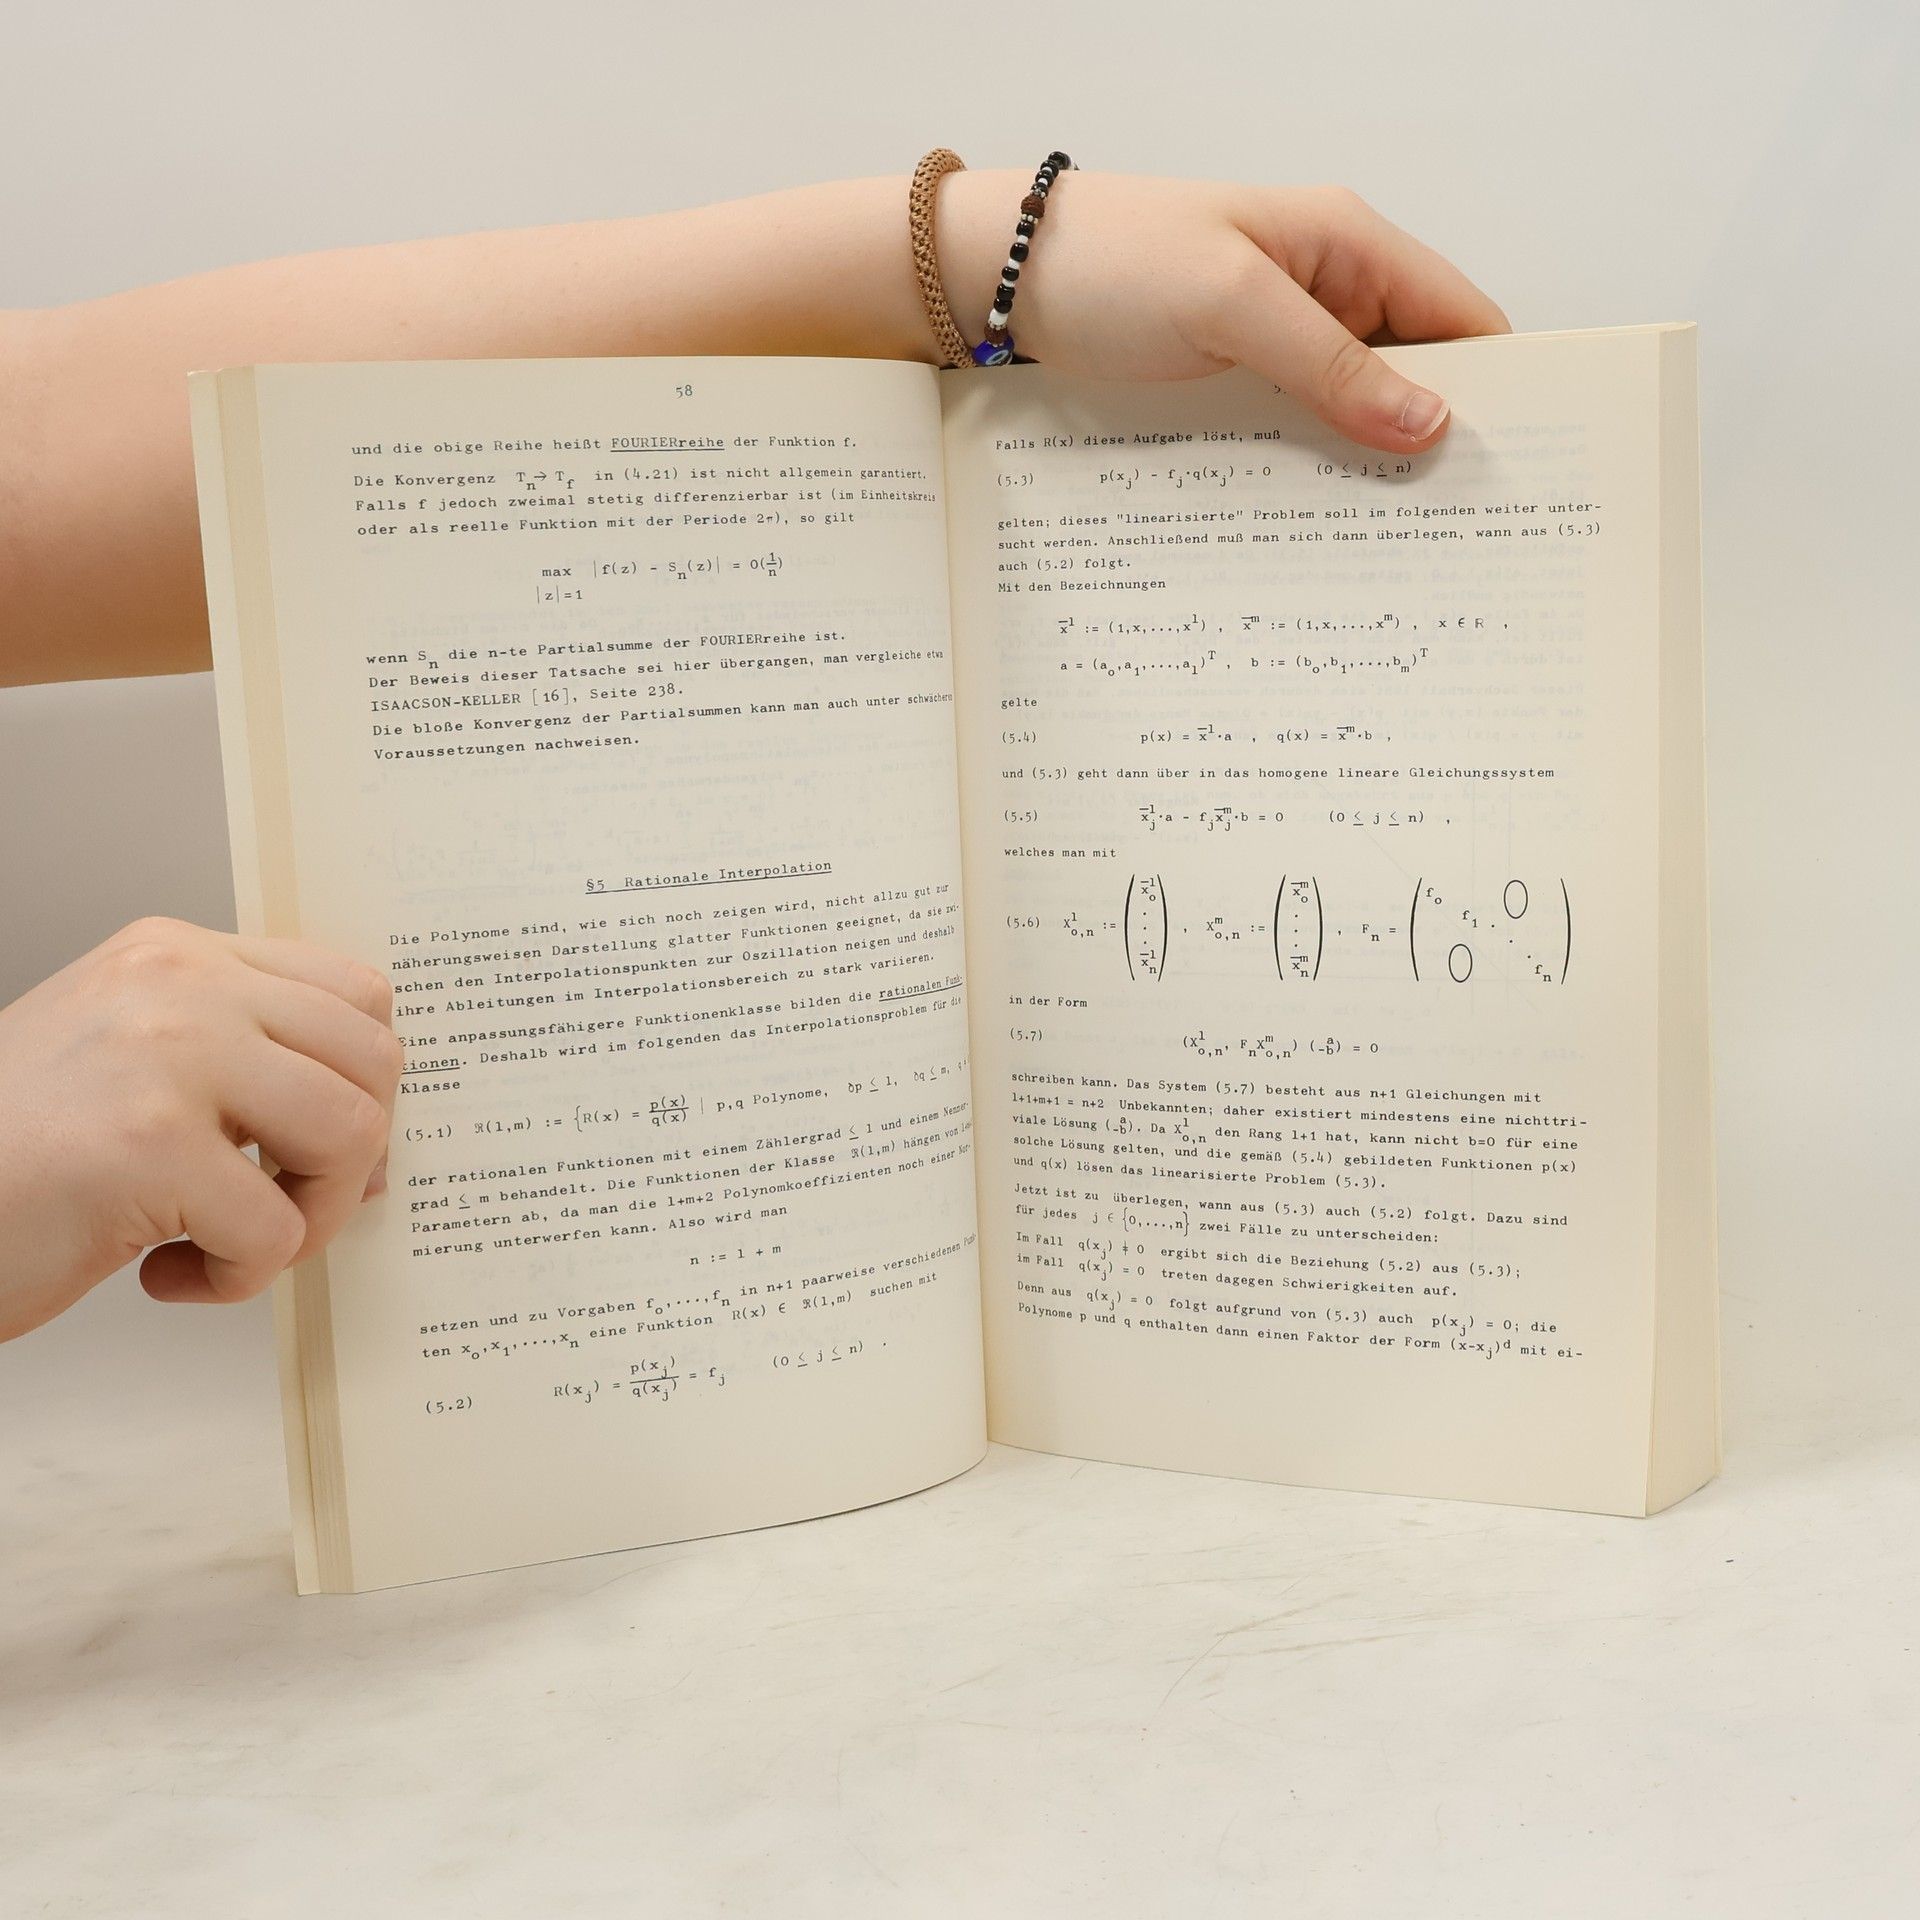 58
und die obige Reihe heißt FOURIERreihe der Funktion f.
Die Konvergenz T_n → T_f in (4.21) ist nicht allgemein garantiert.
Falls f jedoch zweimal stetig differenzierbar ist (im Einheitskreis
oder als reelle Funktion mit der Periode 2π), so gilt
max |f(z) - S_n(z)| = O(1/n)
|z|=1
wenn S_n die n-te Partialsumme der FOURIERreihe ist.
Der Beweis dieser Tatsache sei hier übergangen, man vergleiche etwa
ISAACSON-KELLER [16], Seite 238.
Die bloße Konvergenz der Partialsummen kann man auch unter schwächeren
Voraussetzungen nachweisen.
§5 Rationale Interpolation
Die Polynome sind, wie sich noch zeigen wird, nicht allzu gut zur
näherungsweisen Darstellung glatter Funktionen geeignet, da sie zwi-
schen den Interpolationspunkten zur Oszillation neigen und deshalb
ihre Ableitungen im Interpolationsbereich zu stark variieren.
Eine anpassungsfähigere Funktionenklasse bilden die rationalen Funk-
tionen. Deshalb wird im folgenden das Interpolationsproblem für die
Klasse
(5.1) ℜ(l,m) := {R(x) = p(x)/q(x) | p,q Polynome, ∂p ≤ l, ∂q ≤ m,
der rationalen Funktionen mit einem Zählergrad ≤ l und einem Nenner-
grad ≤ m behandelt. Die Funktionen der Klasse ℜ(l,m) hängen von
Parametern ab, da man die l+m+2 Polynomkoeffizienten noch einer Nor-
mierung unterwerfen kann. Also wird man
n := l + m
setzen und zu Vorgaben f_o,...,f_n in n+1 paarweise verschiedenen Punk-
ten x_o,x_1,...,x_n eine Funktion R(x) ∈ ℜ(l,m) suchen mit
(5.2) R(x_j) = p(x_j)/q(x_j) = f_j (0 ≤ j ≤ n) .
Falls R(x) diese Aufgabe löst, muß
(5.3) p(x_j) - f_j·q(x_j) = 0 (0 ≤ j ≤ n)
gelten; dieses "linearisierte" Problem soll im folgenden weiter unter-
sucht werden. Anschließend muß man sich dann überlegen, wann aus (5.3)
auch (5.2) folgt.
Mit den Bezeichnungen
x̅^l := (1,x,...,x^l) , x̅^m := (1,x,...,x^m) , x ∈ R ,
a = (a_o,a_1,...,a_l)^T , b := (b_o,b_1,...,b_m)^T
gelte
(5.4) p(x) = x̅^l·a , q(x) = x̅^m·b ,
und (5.3) geht dann über in das homogene lineare Gleichungssystem
(5.5) x̅_j^l·a - f_j x̅_j^m·b = 0 (0 ≤ j ≤ n) ,
welches man mit
(5.6) X^l_{o,n} := (x̅_o^l . . . x̅_n^l) , X^m_{o,n} := (x̅_o^m . . . x̅_n^m) , F_n = (f_o f_1 . . . f_n 0 0)
in der Form
(5.7) (X^l_{o,n}, F_n X^m_{o,n}) (a -b) = 0
schreiben kann. Das System (5.7) besteht aus n+1 Gleichungen mit
l+1+m+1 = n+2 Unbekannten; daher existiert mindestens eine nichttri-
viale Lösung (a -b). Da X^l_{o,n} den Rang l+1 hat, kann nicht b=0 für eine
solche Lösung gelten, und die gemäß (5.4) gebildeten Funktionen p(x)
und q(x) lösen das linearisierte Problem (5.3).
Jetzt ist zu überlegen, wann aus (5.3) auch (5.2) folgt. Dazu sind
für jedes j ∈ {0,...,n} zwei Fälle zu unterscheiden:
Im Fall q(x_j) ≠ 0 ergibt sich die Beziehung (5.2) aus (5.3);
im Fall q(x_j) = 0 treten dagegen Schwierigkeiten auf.
Denn aus q(x_j) = 0 folgt aufgrund von (5.3) auch p(x_j) = 0; die
Polynome p und q enthalten dann einen Faktor der Form (x-x_j)^d mit ei-